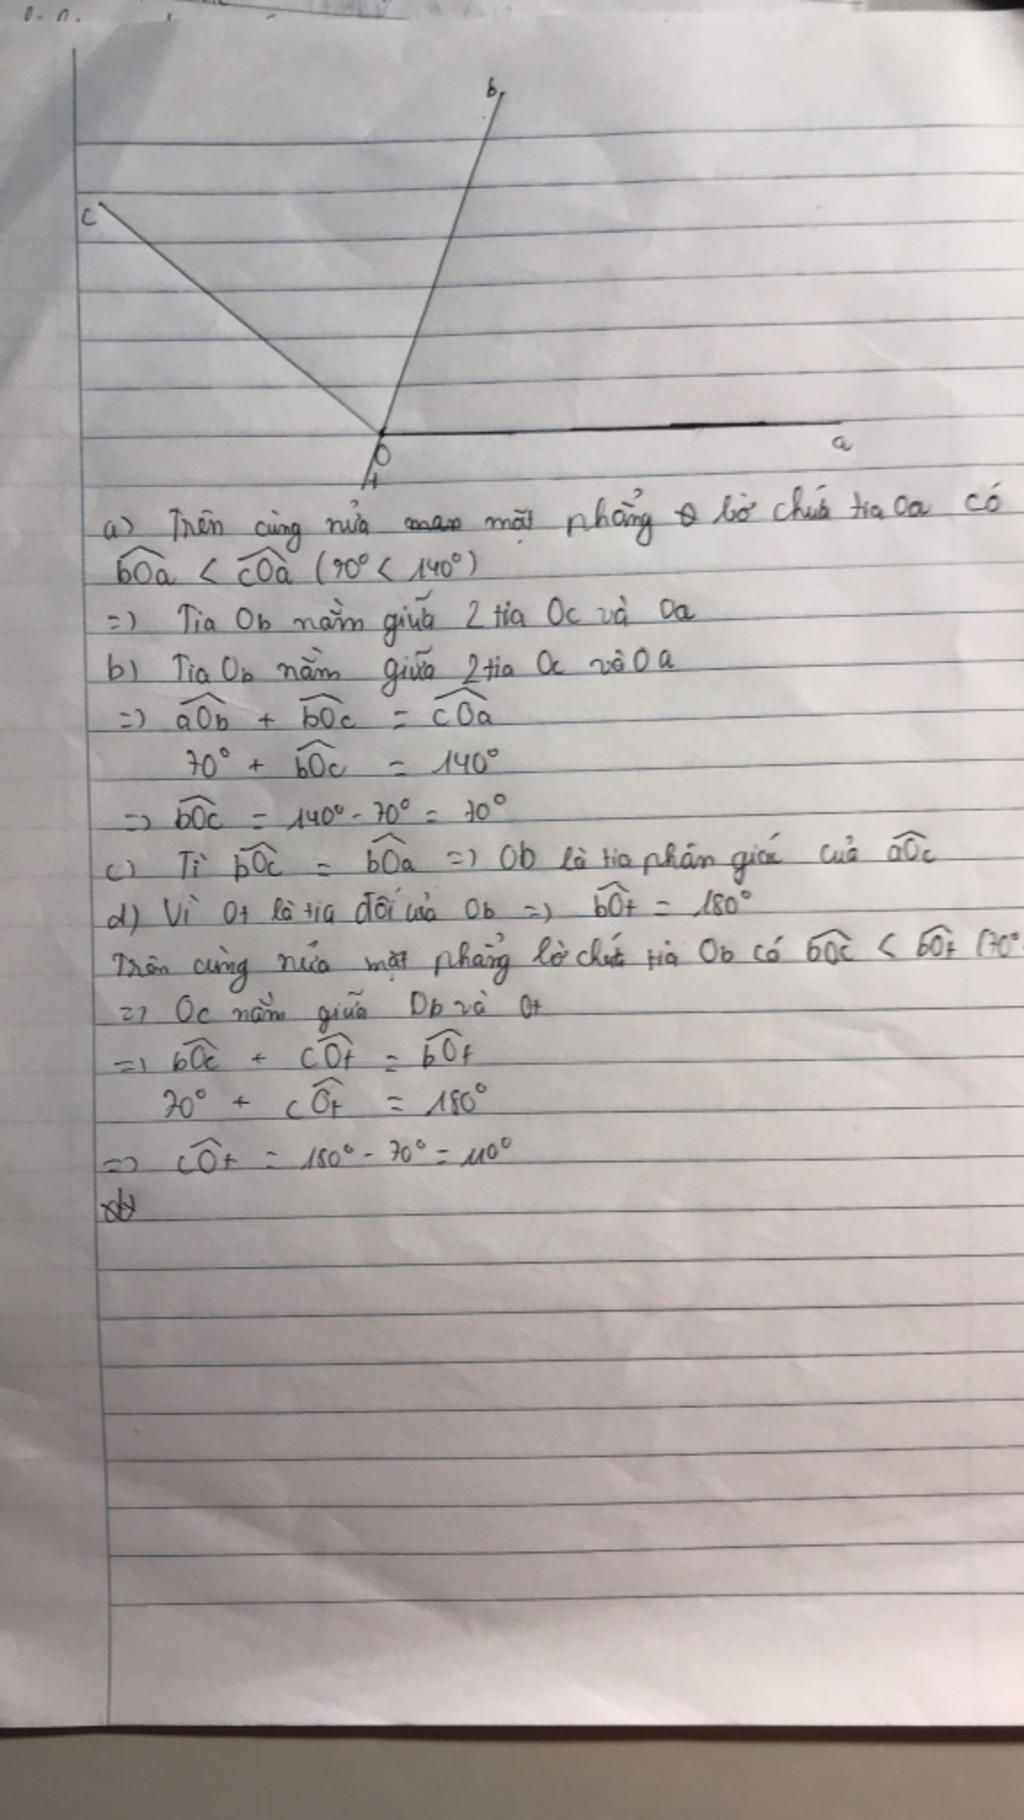 b
c
O
t
a
a) Trên cùng nửa mặt phẳng bờ chứa tia Oa có
bOa < cOa (70° < 140°)
=) Tia Ob nằm giữa 2 tia Oc và Oa
b) Tia Ob nằm giữa 2 tia Oc và Oa
=) aOb + bOc = cOa
70° + bOc = 140°
=> bOc = 140° - 70° = 70°
c) Từ bOc = bOa =) Ob là tia phân giác của aOc
d) Vì Ot là tia đối của Ob =) bOt = 180°
Trên cùng nửa mặt phẳng bờ chứa tia Ob có bOc < bOt (70°
=) Oc nằm giữa Ob và Ot
=) bOc + cOt = bOt
70° + cOt = 180°
=> cOt = 180° - 70° = 110°